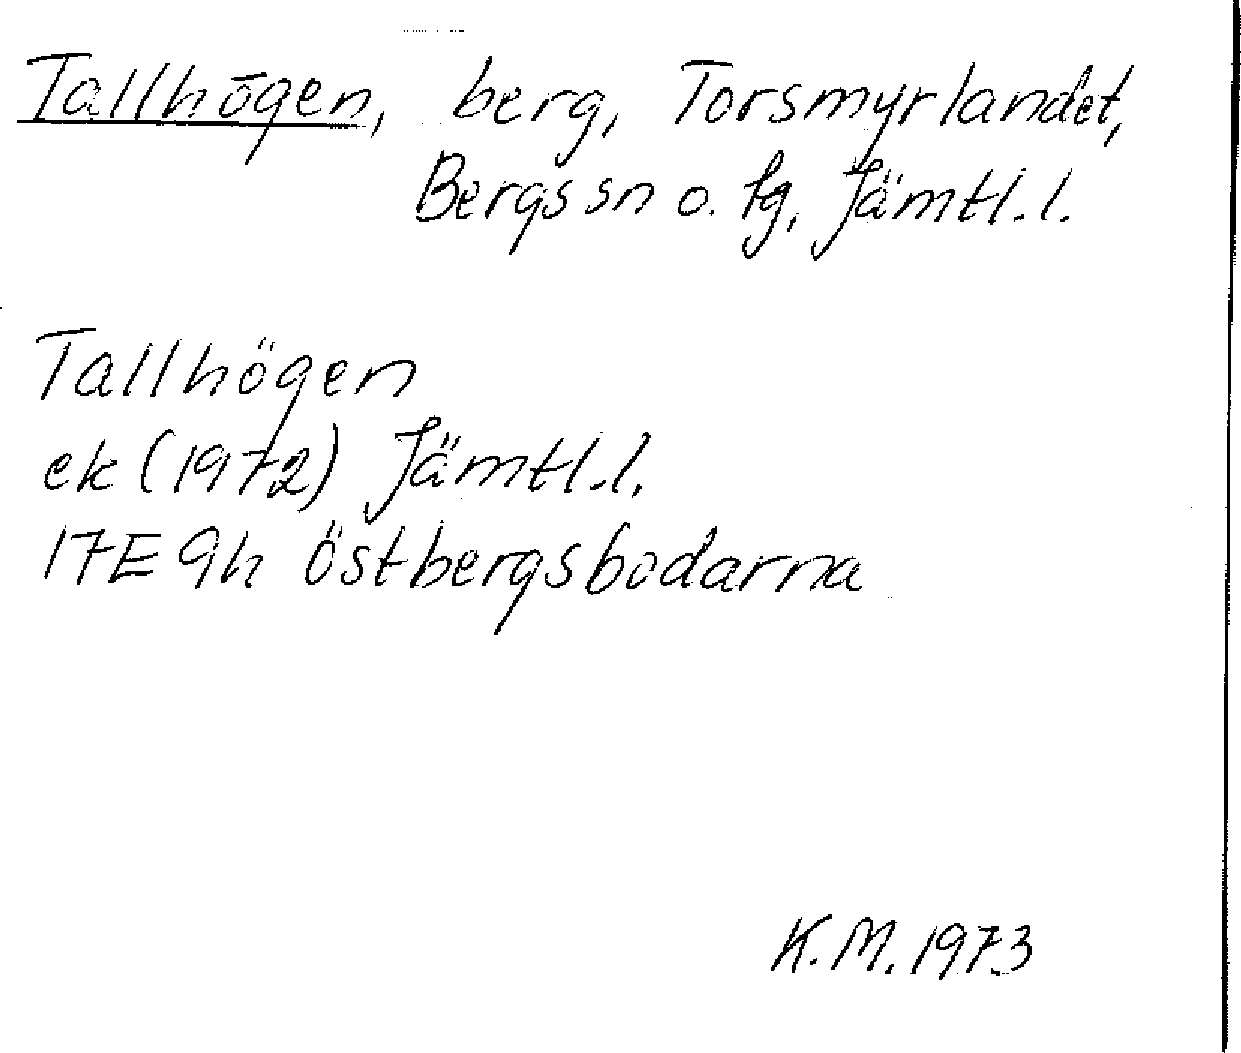 Tallhögen, berg, Torsmyrlandet,
Bergs sn o. tg, Jämtl.l.
Tallhögen
ek (1972) Jämtl.l.
17E 9h Östbergsbodarna
K.M. 1973